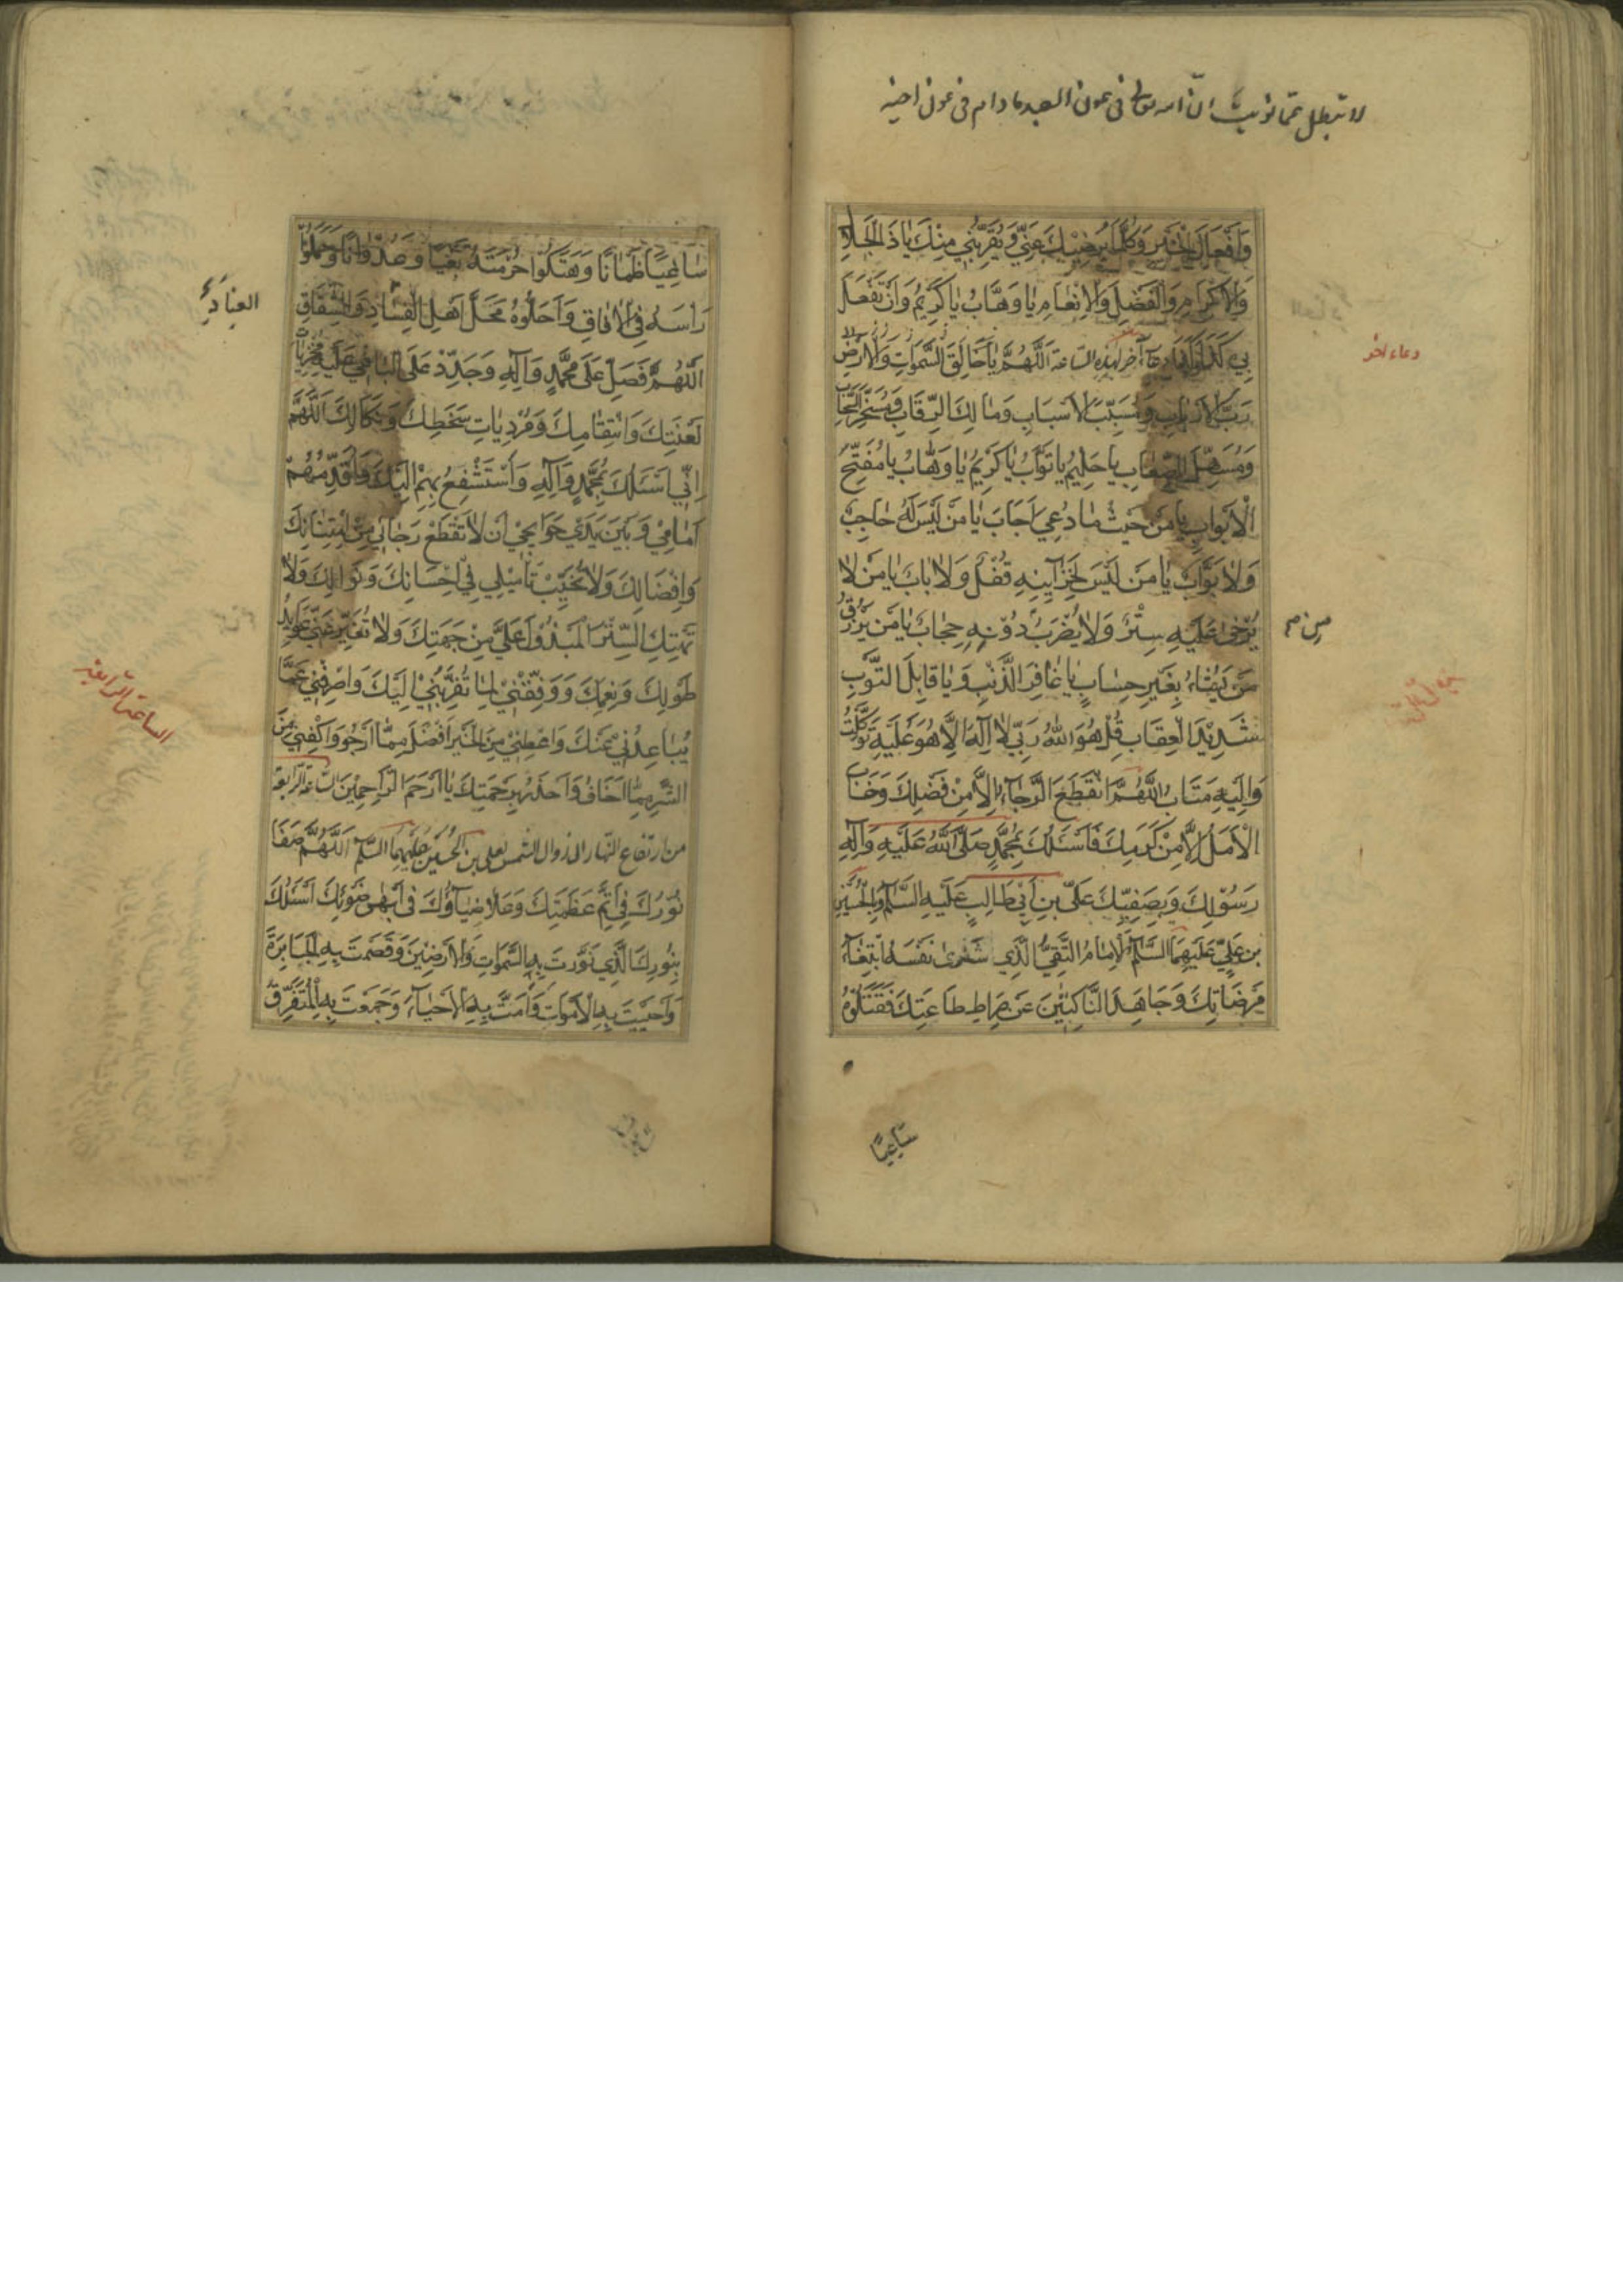 لا تبطل عما نويت انّ الله تعالى فى عون العبد ما دام فى عون اخيه
وَاَفْعَالِ الْخَيْرِ وَكُلَّمَا يُرْضِيْكَ عَنِّي وَيُقَرِّبُنِي مِنْكَ يَا ذَا الْجَلَالِ
وَالْاِكْرَامِ وَالْفَضْلِ وَالْاِنْعَامِ يَا وَهَّابُ يَا كَرِيْمُ وَاَنْ تَفْعَلَ
بِي كَذَا وَكَذَا دعاء آخر لهذه الساعة اَللّٰهُمَّ يَا خَالِقَ السَّمٰوَاتِ وَالْاَرْضِ
دعاء اخر
رَبَّ الْاَرْبَابِ وَمُسَبِّبَ الْاَسْبَابِ وَمَالِكَ الرِّقَابِ وَمُسَخِّرَ السَّحَابِ
وَمُسَهِّلَ الصِّعَابِ يَا حَلِيْمُ يَا تَوَّابُ يَا كَرِيْمُ يَا وَهَّابُ يَا مُفَتِّحَ
الْاَبْوَابِ يَا مَنْ حَيْثُ مَا دُعِيَ اَجَابَ يَا مَنْ لَيْسَ لَهُ حَاجِبٌ
وَلَا بَوَّابٌ يَا مَنْ لَيْسَ لِخَزَآيِنِهِ قُفْلٌ وَلَا بَابَ يَا مَنْ لَا
يُرْخٰى عَلَيْهِ سِتْرٌ وَلَا يُضْرَبُ دُوْنِهِ حِجَابٌ يَا مَنْ يَرْزُقُ
مَنْ يَشَاءُ بِغَيْرِ حِسَابٍ يَا غَافِرَ الذَّنْبِ وَيَا قَابِلَ التَّوْبِ
شَدِيْدَ الْعِقَابِ قُلْ هُوَ اللّٰهُ رَبِّي لَا اِلٰهَ اِلَّا هُوَ عَلَيْهِ تَوَكَّلْتُ
وَاِلَيْهِ مَتَابِ اَللّٰهُمَّ انْقَطَعَ الرَّجَآءُ اِلَّا مِنْ فَضْلِكَ وَخَابَ
الْاَمَلُ اِلَّا مِنْ كَرَمِكَ فَاَسْئَلُكَ بِمُحَمَّدٍ صَلَّى اللّٰهُ عَلَيْهِ وَآلِهِ
رَسُوْلِكَ وَبِصَفِيِّكَ عَلِيِّ بْنِ اَبِي طَالِبٍ عَلَيْهِ السَّلَامُ وَبِالْحُسَيْنِ
بْنِ عَلِيٍّ عَلَيْهِمَا السَّلَامُ الْاِمَامُ التَّقِيُّ الَّذِي شَرٰى نَفْسَهُ ابْتِغَآءَ
مَرْضَاتِكَ وَجَاهَدَ النَّاكِبِيْنَ عَنْ صِرَاطِ طَاعَتِكَ فَقَتَلُوْهُ
سَاغِبًا
سَاغِبًا ظَمْاٰنًا وَهَتَكُوْا حُرْمَتَهُ بَغْيًا وَعُدْوَانًا وَحَمَلُوْا
رَاْسَهُ فِي الْاٰفَاقِ وَاَحَلُّوْهُ مَحَلَّ اَهْلِ الْفَسَادِ وَالشِّقَاقِ
العناد
اَللّٰهُمَّ فَصَلِّ عَلٰى مُحَمَّدٍ وَآلِهِ وَجَدِّدْ عَلَى الْبَاغِي عَلَيْهِ مُخْزِيَاتِ
لَعْنَتِكَ وَانْتِقَامِكَ وَمُرْدِيَاتِ سَخَطِكَ وَنَكَالِكَ اَللّٰهُمَّ
اِنِّي اَسْئَلُكَ بِمُحَمَّدٍ وَآلِهِ وَاَسْتَشْفِعُ بِهِمْ اِلَيْكَ وَاُقَدِّمُهُمْ
اَمَامِي وَبَيْنَ يَدَيْ حَوَايِجِي اَنْ لَا تَقْطَعْ رَجَائِي مِنْ اِمْتِنَانِكَ
وَاِفْضَالِكَ وَلَا تُخَيِّبْ تَأْمِيْلِي فِي اِحْسَانِكَ وَنَوَالِكَ وَلَا
تَهْتِكِ السِّتْرَ الْمَسْدُوْلَ عَلَيَّ مِنْ جِهَتِكَ وَلَا تُغَيِّرْ عَنِّي عَوَايِدَ
طَوْلِكَ وَنِعَمِكَ وَوَفِّقْنِي لِمَا يُقَرِّبُنِي اِلَيْكَ وَاصْرِفْنِي عَمَّا
يُبَاعِدُنِي عَنْكَ وَاَعْطِنِي مِنَ الْخَيْرِ اَفْضَلَ مِمَّا اَرْجُوْ وَاكْفِنِي مِنَ
الشَّرِّ مِمَّا اَخَافُ وَاَحْذَرُ بِرَحْمَتِكَ يَا اَرْحَمَ الرَّاحِمِيْنَ الساعة الرابعة
الساعة الرابعة
من ارتفاع النهار الى زوال الشمس لعلي بن الحسين عليهما السلام اَللّٰهُمَّ صَفَا
نُوْرُكَ فِي اَتَمِّ عَظَمَتِكَ وَعَلَا ضِيَآؤُكَ فِي اَبْهٰى ضَوْئِكَ اَسْئَلُكَ
بِنُوْرِكَ الَّذِي نَوَّرْتَ بِهِ السَّمٰوَاتِ وَالْاَرَضِيْنَ وَقَصَمْتَ بِهِ الْجَبَابِرَةَ
وَاَحْيَيْتَ بِهِ الْاَمْوَاتَ وَاَمَتَّ بِهِ الْاَحْيَآءَ وَجَمَعْتَ بِهِ الْمُتَفَرِّقَ